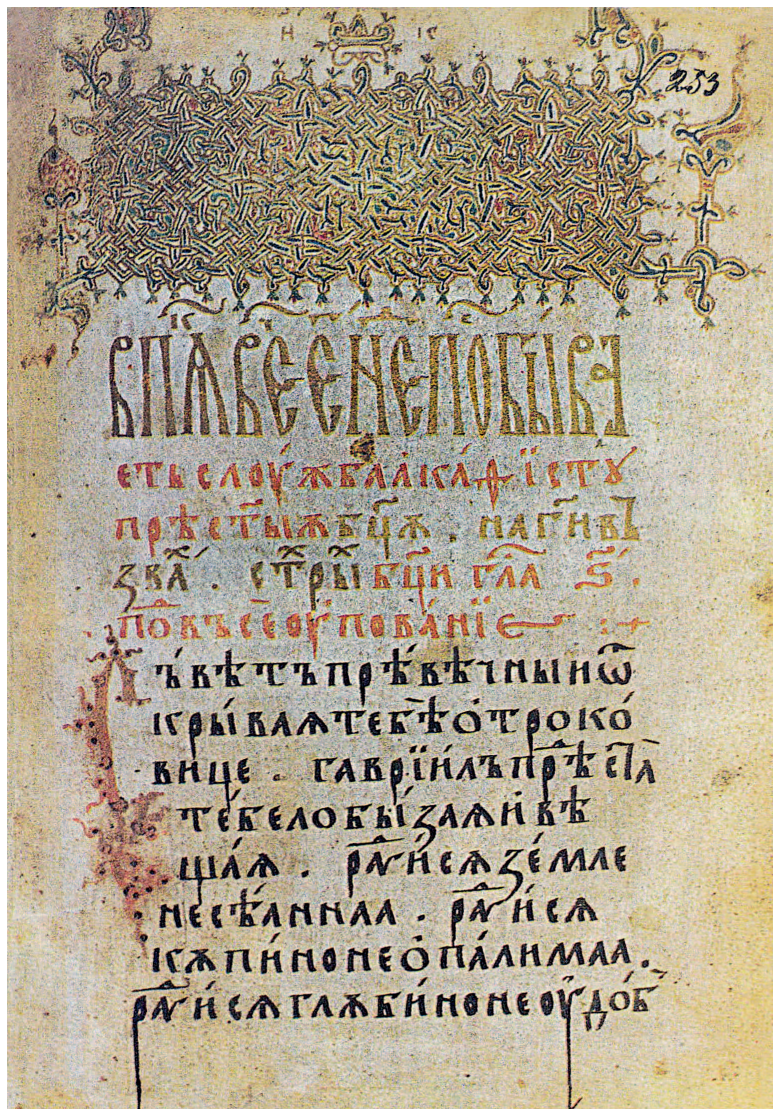 253
ВПѦВЕЄНЕПОБЫВА
еть слоужба акаѳїсту
прѣст҃ыѫ бц҃ѧ . на г҃и въ
зва́ⷯ . ст҃хры́ бц҃и гл҃а ѕ҃ .
поⷣ въсе оу҆пова́нїе :+
Съвѣтъ прѣвѣчныи ѿ
кры́ваѧ тебѣ ѻ҆троко́
вице . гаврїи́лъ прѣ́стⷶ
те́бе лобы́заѧ и҆ вѣ
ща́ѧ . раⷣѵисѧ зе́мле
несѣ́аннаа . раⷣѵисѧ
кѫпи́но неѻ҆па́лимаа .
раⷣѵисѧ глѫби́но неоу҆до́б